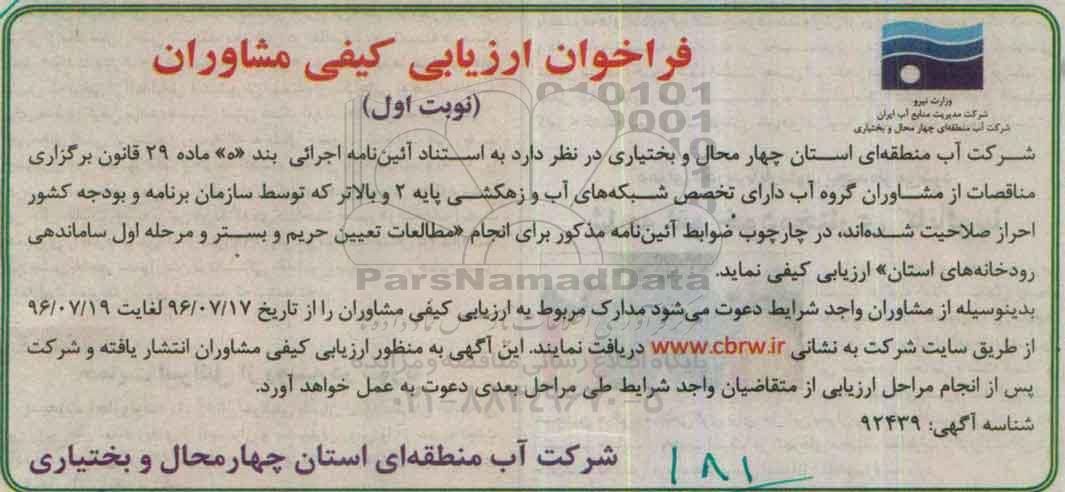 فراخوان ارزیابی کیفی مشاوران
(نوبت اول)
وزارت نیرو
شرکت مدیریت منابع آب ایران
شرکت آب منطقه‌ای چهار محال و بختیاری
شرکت آب منطقه‌ای استان چهار محال و بختیاری در نظر دارد به استناد آئین‌نامه اجرائی بند «ه» ماده ۲۹ قانون برگزاری
مناقصات از مشاوران گروه آب دارای تخصص شبکه‌های آب و زهکشی پایه ۲ و بالاتر که توسط سازمان برنامه و بودجه کشور
احراز صلاحیت شده‌اند، در چارچوب ضوابط آئین‌نامه مذکور برای انجام «مطالعات تعیین حریم و بستر و مرحله اول ساماندهی
رودخانه‌های استان» ارزیابی کیفی نماید.
بدینوسیله از مشاوران واجد شرایط دعوت می‌شود مدارک مربوط به ارزیابی کیفی مشاوران را از تاریخ ۹۶/۰۷/۱۷ لغایت ۹۶/۰۷/۱۹
از طریق سایت شرکت به نشانی www.cbrw.ir دریافت نمایند. این آگهی به منظور ارزیابی کیفی مشاوران انتشار یافته و شرکت
پس از انجام مراحل ارزیابی از متقاضیان واجد شرایط طی مراحل بعدی دعوت به عمل خواهد آورد.
شناسه آگهی: ۹۲۴۳۹
شرکت آب منطقه‌ای استان چهارمحال و بختیاری
۱۸۱
ParsNamadData
پایگاه اطلاع رسانی مناقصه و مزایده
۰۲۱-۸۸۳۴۹۶۷۰-۵